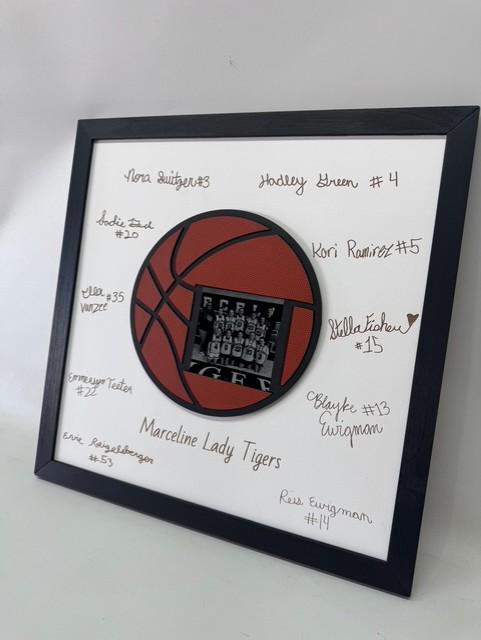 Nora Switzer #3
Hadley Green #4
Sadie
#20
Kori Ramirez #5
Ella #35
VanZee
Stella Fisher
#15
Emmersyn Teeter
#22
Blayke #13
Ewigman
Marceline Lady Tigers
Evie
#53
Reis Ewigman
#14